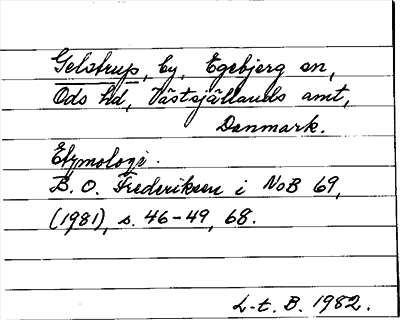 Gelstrup, by, Egebjerg sn,
Ods hd, Västsjällands amt,
Danmark.
Etymologi.
B. O. Frederiksen i NoB 69,
(1981), s. 46-49, 68.
L-t. B. 1982.